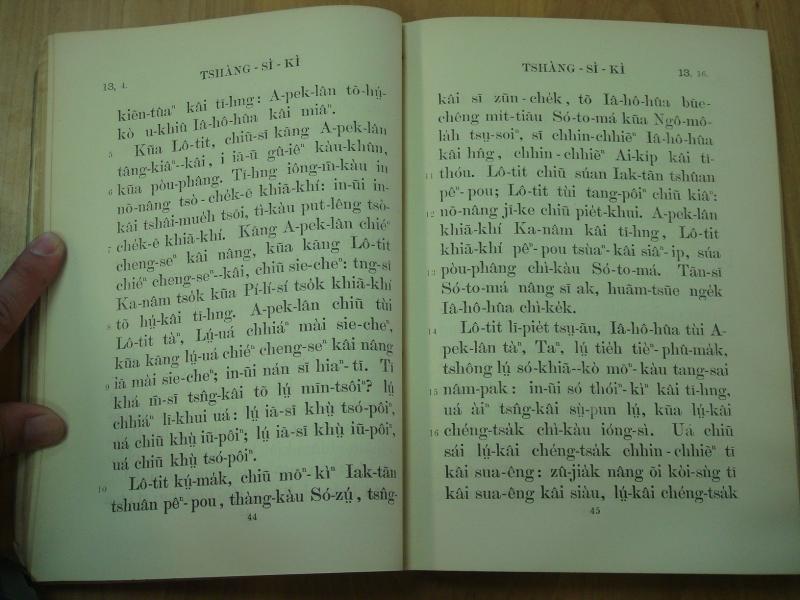 13, 4.
TSHÀNG - SÌ - KÌ
kiēn-tûaⁿ kâi tī-hng: A-pek-lân tō-hṳ́-
kò u-khiû Iâ-hô-hûa kâi miâⁿ.
5 Kūa Lô-tit, chiū-sī kāng A-pek-lân
tâng-kiâⁿ--kâi, i iā-ū gû-iêⁿ kàu-khûn,
6 kūa pòu-phâng. Tī-hng iông-m̄-kàu in
nō-nâng tsò-chék-ē khiā-khí: in-ūi in-
kâi tshâi-mue̍h tsōi, tì-kàu put-lêng tsò-
7 chék-ē khiā-khí. Kāng A-pek-lân chiéⁿ
cheng-seⁿ kâi nâng, kūa kāng Lô-tit
chiéⁿ cheng-seⁿ--kâi, chiū sie-cheⁿ: tng-sî
Ka-nâm tso̍k kūa Pí-lí-sí tso̍k khiā-khí
8 tō hṳ́-kâi tī-hng. A-pek-lân chiū tùi
Lô-tit tàⁿ, Lṳ́-uá chhiáⁿ mài sie-cheⁿ,
kūa kāng lṳ́-uá chiéⁿ cheng-seⁿ kâi nâng
iā mài sie-cheⁿ; in-ūi nán sī hiaⁿ-tī. Tī
9 khá m̄-sī tsn̂g-kâi tō lṳ́ mīn-tsôiⁿ? lṳ́
chhiáⁿ lī-khui uá: lṳ́ iā-sī khṳ̀ tsó-pôiⁿ,
uá chiū khṳ̀ iū-pôiⁿ; lṳ́ iā-sī khṳ̀ iū-pôiⁿ,
uá chiū khṳ̀ tsó-pôiⁿ.
10 Lô-tit kṳ́-mák, chiū môⁿ-kìⁿ Iak-tān
tshuân pêⁿ-pou, thàng-kàu Só-zṳ́, tsn̂g-
44
TSHÀNG - SÌ - KÌ
13, 16.
kâi sī zūn-che̍k, tō Iâ-hô-hûa būe-
chêng mit-tiāu Só-to-má kūa Ngô-mô-
lah tsṳ-soiⁿ, sī chhin-chhiēⁿ Iâ-hô-hûa
kâi hn̂g, chhin-chhiēⁿ Ai-kip kâi tī-
11 thóu. Lô-tit chiū súan Iak-tān tshûan
pêⁿ-pou; Lô-tit tùi tang-pôiⁿ chiū kiâⁿ:
12 nō-nâng jī-ke chiū pie̍t-khui. A-pek-lân
khiā-khí Ka-nâm kâi tī-hng, Lô-tit
khiā-khí pêⁿ-pou tsùaⁿ-kâi siâⁿ-ip, súa
13 pòu-phâng chì-kàu Só-to-má. Tān-sī
Só-to-má nâng sī ak, huām-tsūe nge̍k
Iâ-hô-hûa chì-ke̍k.
14 Lô-tit lī-pie̍t tsṳ-āu, Iâ-hô-hûa tùi A-
pek-lân tàⁿ, Taⁿ, lṳ́ tie̍h tièⁿ-phû-ma̍k,
tshông lṳ́ só-khiā--kò mōⁿ-kàu tang-sai
15 nâm-pak: in-ūi só thóiⁿ-kìⁿ kâi tī-hng,
uá àiⁿ tsn̂g-kâi sṳ̀-pun lṳ́, kūa lṳ́-kâi
16 chéng-tsa̍k chì-kàu ióng-sì. Uá chiū
sái lṳ́-kâi chéng-tsa̍k chhin-chhiēⁿ tī
kâi sua-êng: zû-jia̍k nâng õi kòi-sǹg tī
kâi sua-êng kâi siàu, lṳ́-kâi chéng-tsa̍k
45